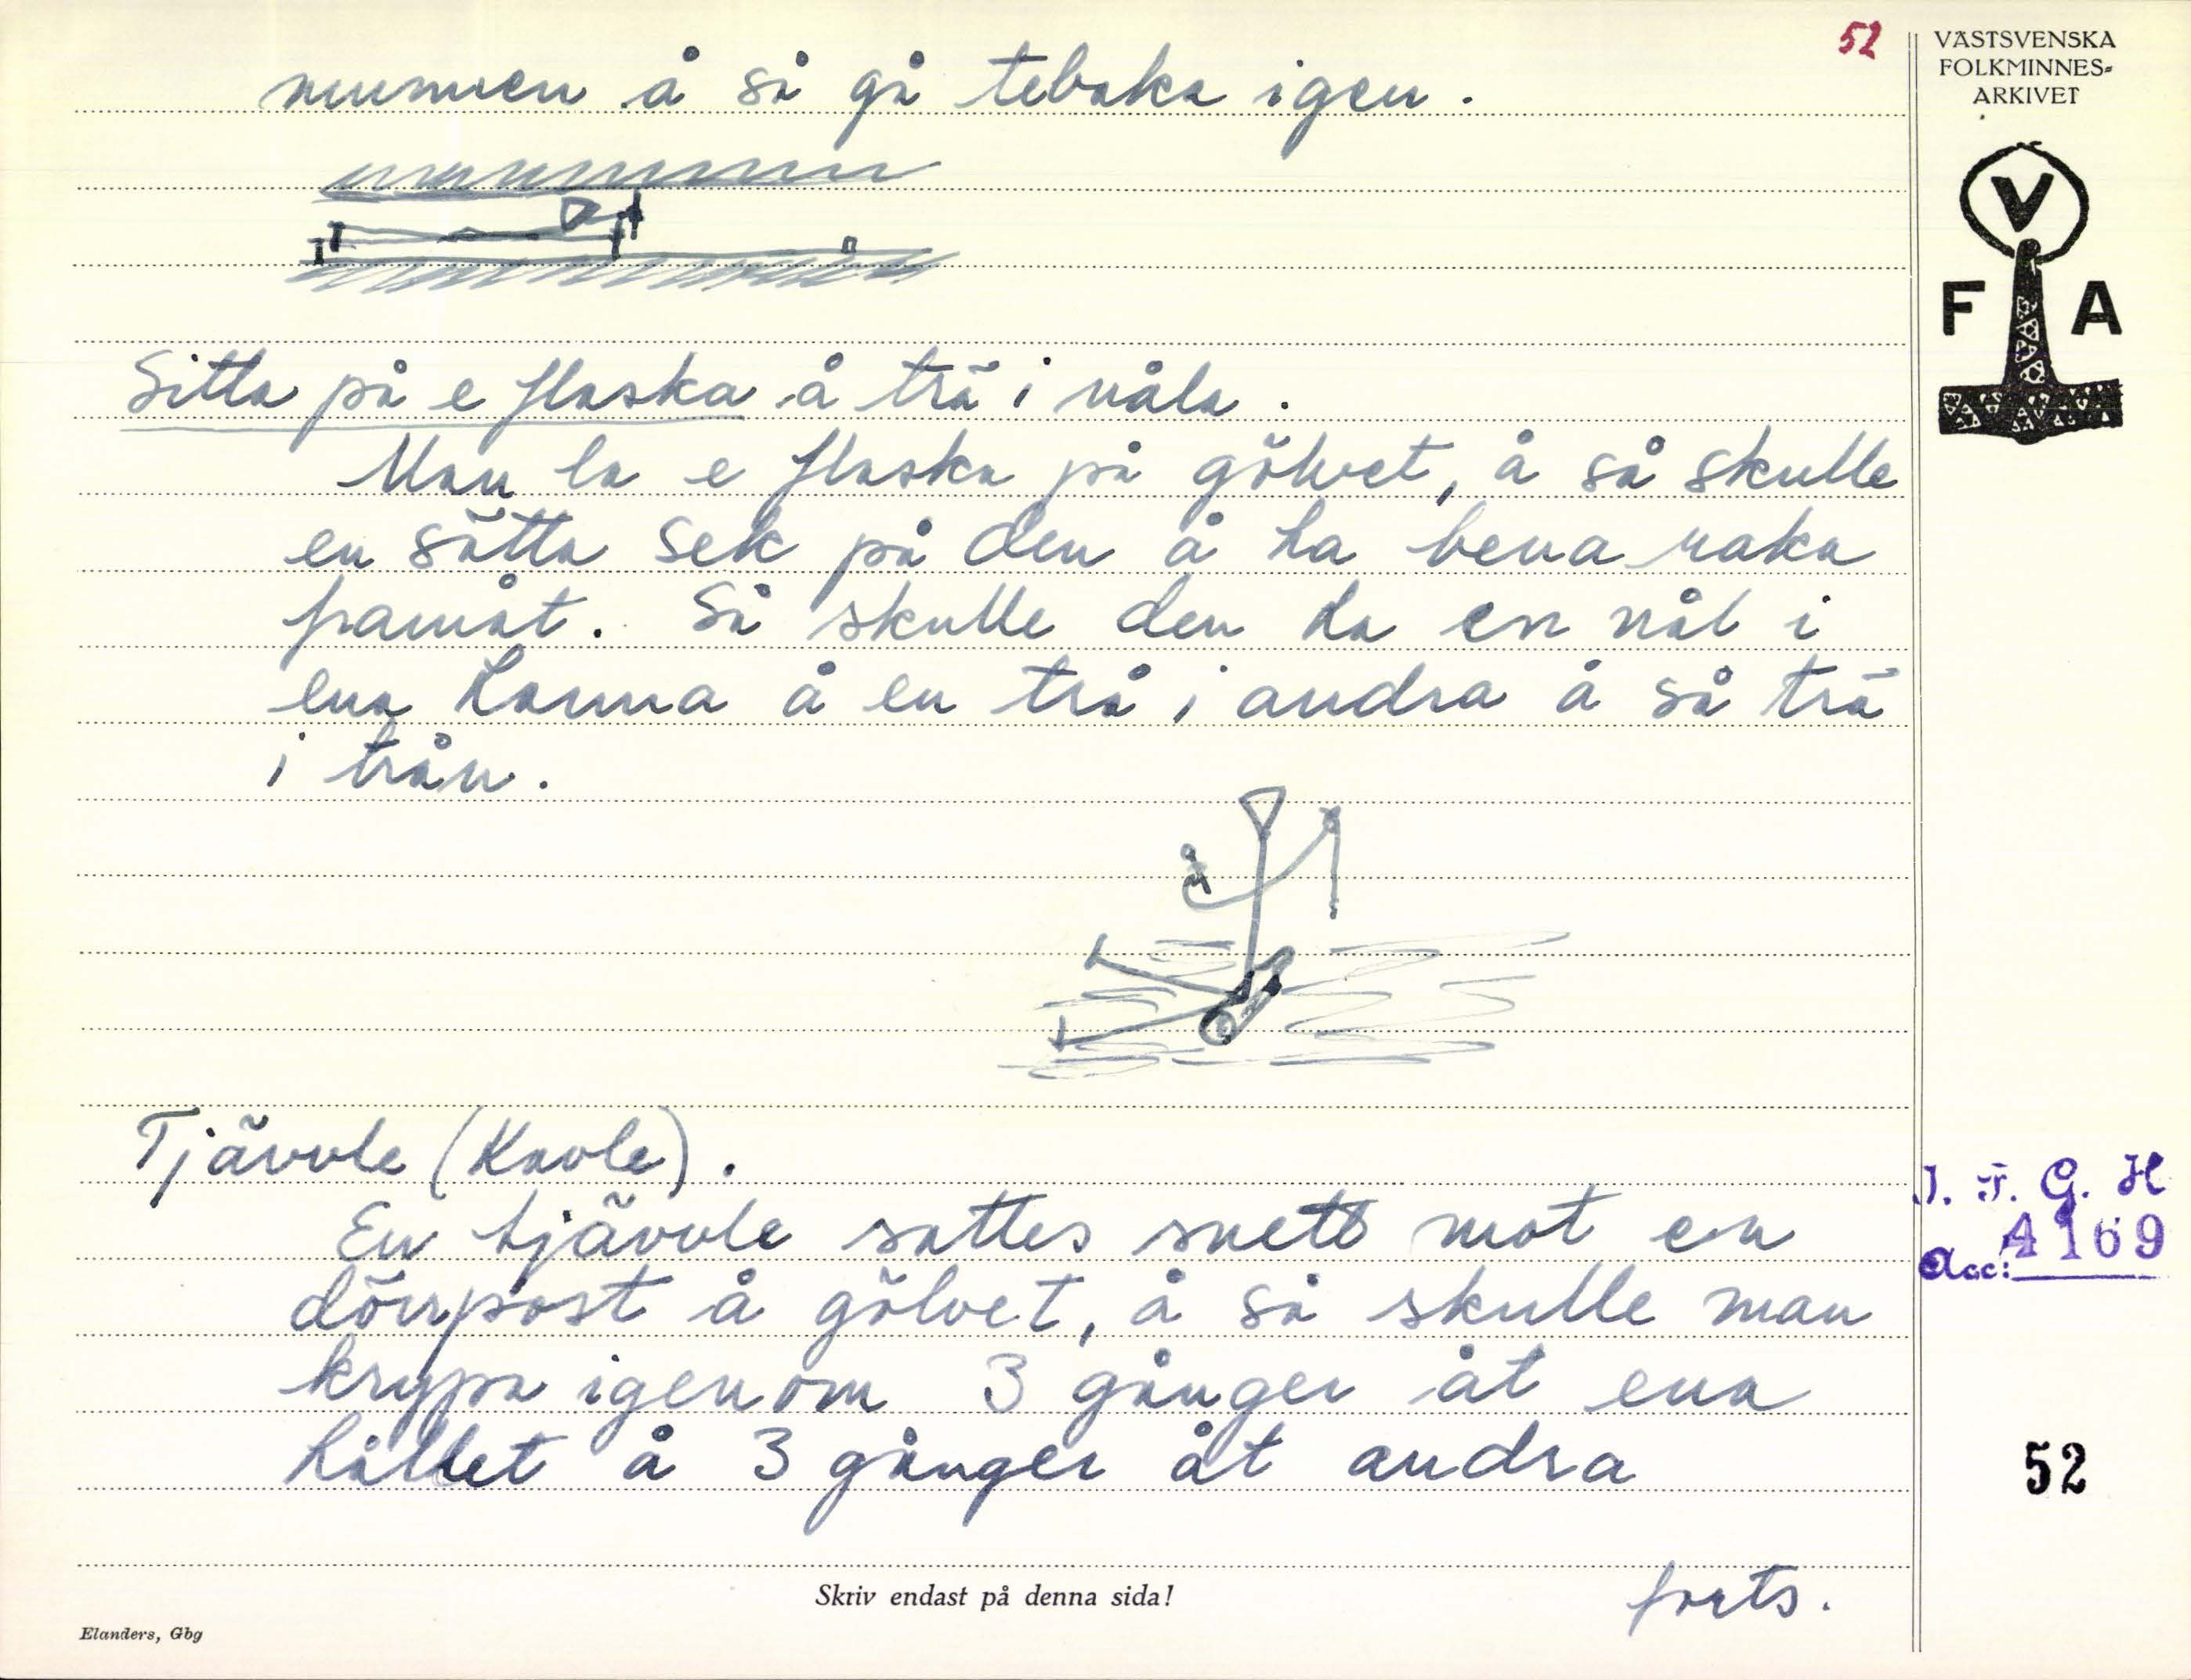 52
VÄSTSVENSKA
FOLKMINNES-
ARKIVET
V
F A
munnen å så gå tebaka igen.
Sitta på e flaska å trä i nåla.
Man la e flaska på gölvet, å så skulle
en sätta sek på den å ha bena raka
framåt. Så skulle den ha en nål i
ena hanna å en trå i andra å så trä
i trån.
Tjävvle (Kavle).
En tjävvle sattes snett mot en
dörrpost å gölvet, å så skulle man
krypa igenom 3 gånger åt ena
hållet å 3 gånger åt andra
I. F. G. H
Acc: 4169
52
forts.
Skriv endast på denna sida!
Elanders, Gbg